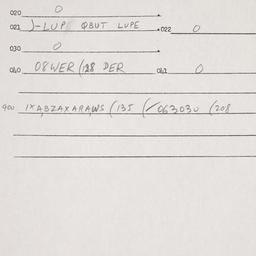 020 0
021 )-LUP QBUT LUPE 022 0
030 0
040 08WER (128 DER 042 0
900 1XABZAXARAWS (135 (/063030 (208